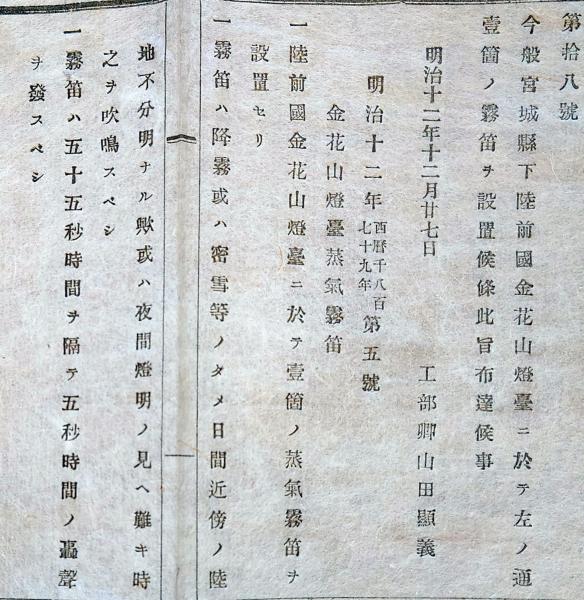 第拾八號
今般宮城縣下陸前國金花山燈臺ニ於テ左ノ通
壹箇ノ霧笛ヲ設置候條此旨布達候事
明治十二年十二月廿七日　工部卿山田顯義
明治十二年西曆千八百七十九年第五號
金花山燈臺蒸氣霧笛
一陸前國金花山燈臺ニ於テ壹箇ノ蒸氣霧笛ヲ
設置セリ
一霧笛ハ降霧或ハ密雪等ノタメ日間近傍ノ陸
地不分明ナル歟或ハ夜間燈明ノ見ヘ難キ時
之ヲ吹鳴スベシ
一霧笛ハ五十五秒時間ヲ隔テ五秒時間ノ轟聲
ヲ發スベシ